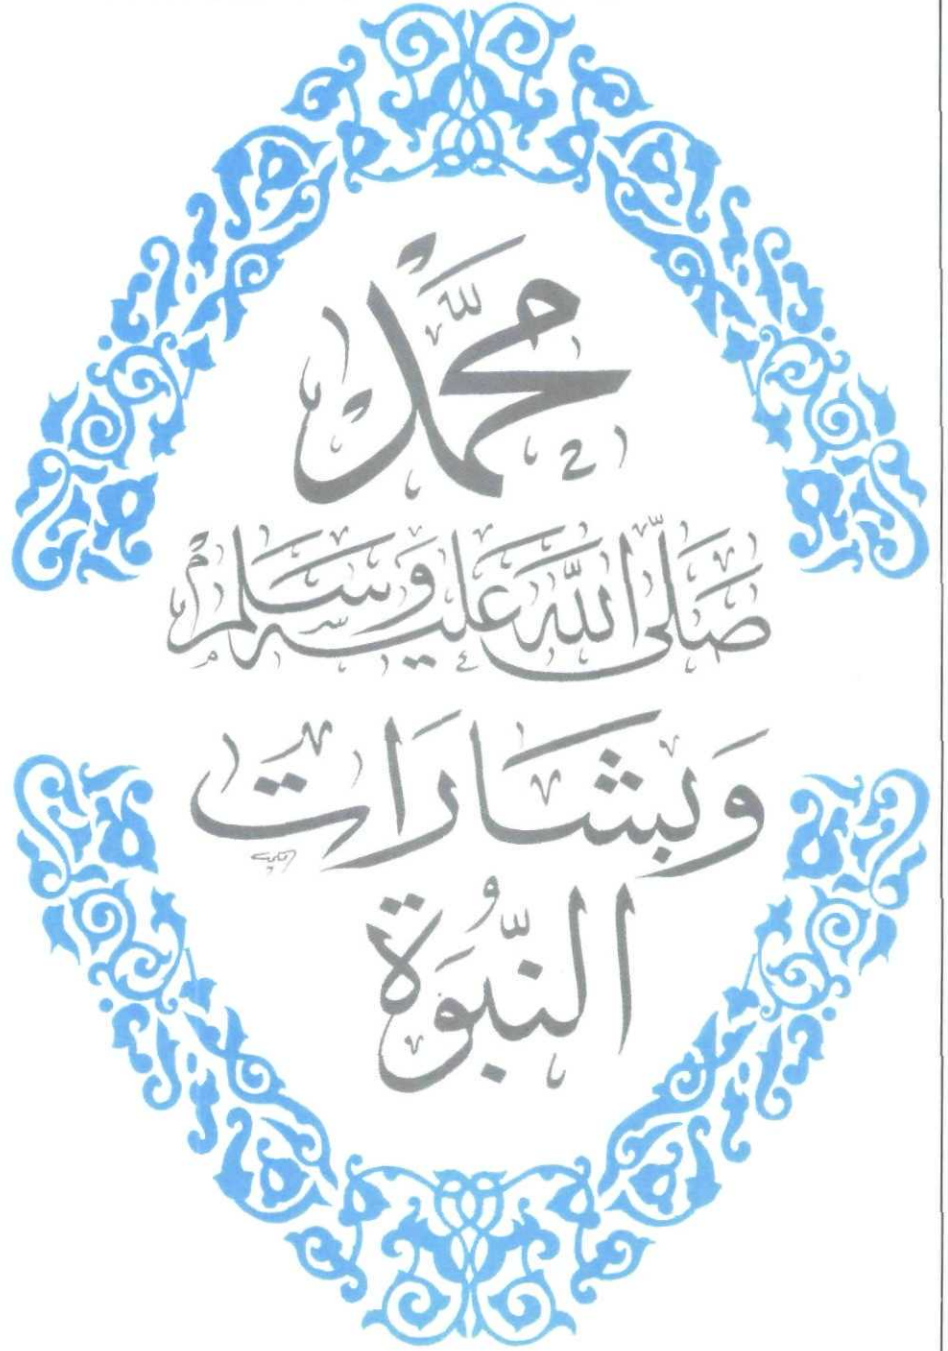 محمَّد
صَلَّى اللَّه عَليْه وَسَلَّم
وَبشَارَات
النبُّوَة